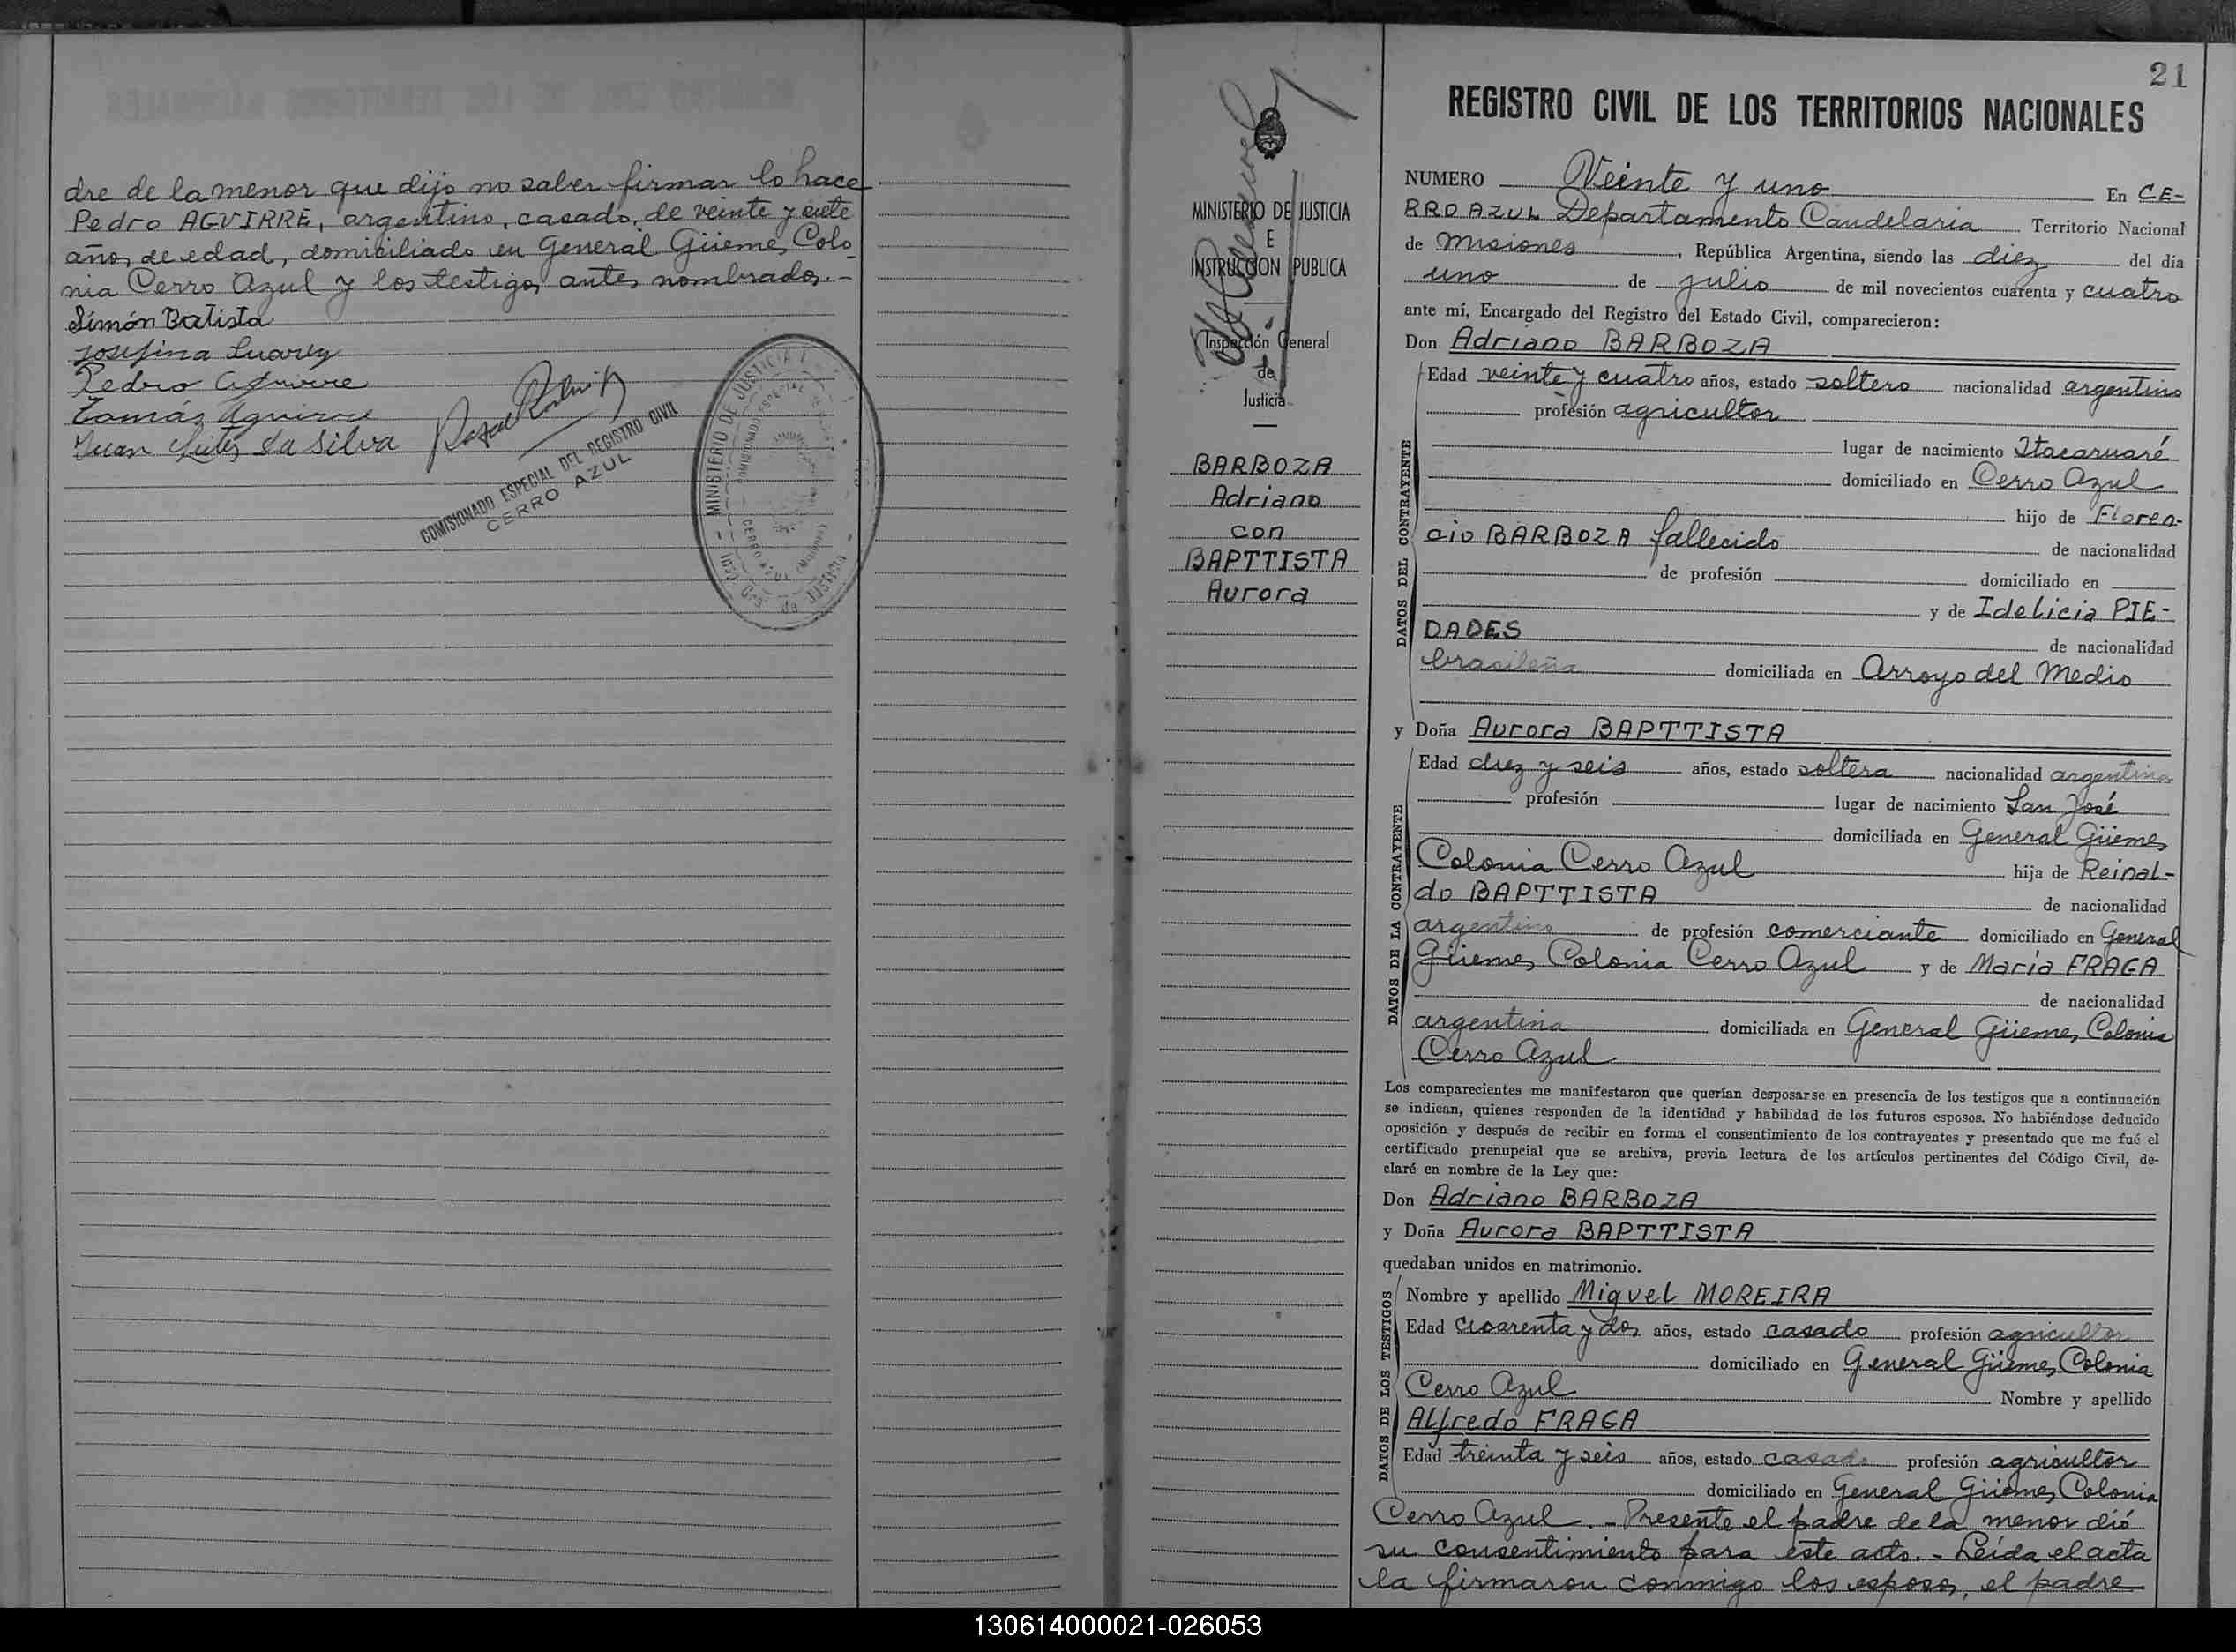 dre de la menor que dijo no saber firmar lo hace
Pedro AGUIRRE, argentino, casado, de veinte y siete
años de edad, domiciliado en General Güemes, Colo
nia Cerro Azul y los testigos antes nombrados.-
Simón Batista
Josefina Suarez
Pedro Aguirre
Tomás Aguirre
Juan Leites da Silva
COMISIONADO ESPECIAL DEL REGISTRO CIVIL
CERRO AZUL
MINISTERIO DE JUSTICIA E
CERRO AZUL (Misiones)
Gral. de Justicia
MINISTERIO DE JUSTICIA
E
INSTRUCCION PUBLICA
Inspección General
de
Justicia
BARBOZA
Adriano
con
BAPTTISTA
Aurora
21
REGISTRO CIVIL DE LOS TERRITORIOS NACIONALES
NUMERO Veinte y uno En CE-
RRO AZUL Departamento Candelaria Territorio Nacional
de Misiones, República Argentina, siendo las diez del día
uno de julio de mil novecientos cuarenta y cuatro
ante mí, Encargado del Registro del Estado Civil, comparecieron:
Don Adriano BARBOZA
DATOS DEL CONTRAYENTE
Edad veinte y cuatro años, estado soltero nacionalidad argentino
profesión agricultor
lugar de nacimiento Itacaruaré
domiciliado en Cerro Azul
hijo de Floren-
cio BARBOZA fallecido de nacionalidad
de profesión domiciliado en
y de Idelicia PIE-
DADES de nacionalidad
brasileña domiciliada en Arroyo del Medio
y Doña Aurora BAPTTISTA
DATOS DE LA CONTRAYENTE
Edad diez y seis años, estado soltera nacionalidad argentina
profesión lugar de nacimiento San José
domiciliada en General Güemes
Colonia Cerro Azul hija de Reinal-
do BAPTTISTA de nacionalidad
argentino de profesión comerciante domiciliado en General
Güemes, Colonia Cerro Azul y de María FRAGA
de nacionalidad
argentina domiciliada en General Güemes, Colonia
Cerro Azul
Los comparecientes me manifestaron que querían desposarse en presencia de los testigos que a continuación
se indican, quienes responden de la identidad y habilidad de los futuros esposos. No habiéndose deducido
oposición y después de recibir en forma el consentimiento de los contrayentes y presentado que me fué el
certificado prenupcial que se archiva, previa lectura de los artículos pertinentes del Código Civil, de-
claré en nombre de la Ley que:
Don Adriano BARBOZA
y Doña Aurora BAPTTISTA
quedaban unidos en matrimonio.
DATOS DE LOS TESTIGOS
Nombre y apellido Miguel MOREIRA
Edad cuarenta y dos años, estado casado profesión agricultor
domiciliado en General Güemes, Colonia
Cerro Azul Nombre y apellido
Alfredo FRAGA
Edad treinta y seis años, estado casado profesión agricultor
domiciliado en General Güemes, Colonia
Cerro Azul.- Presente el padre de la menor dió
su consentimiento para este acto.- Leída el acta
la firmaron conmigo los esposos, el padre
130614000021-026053